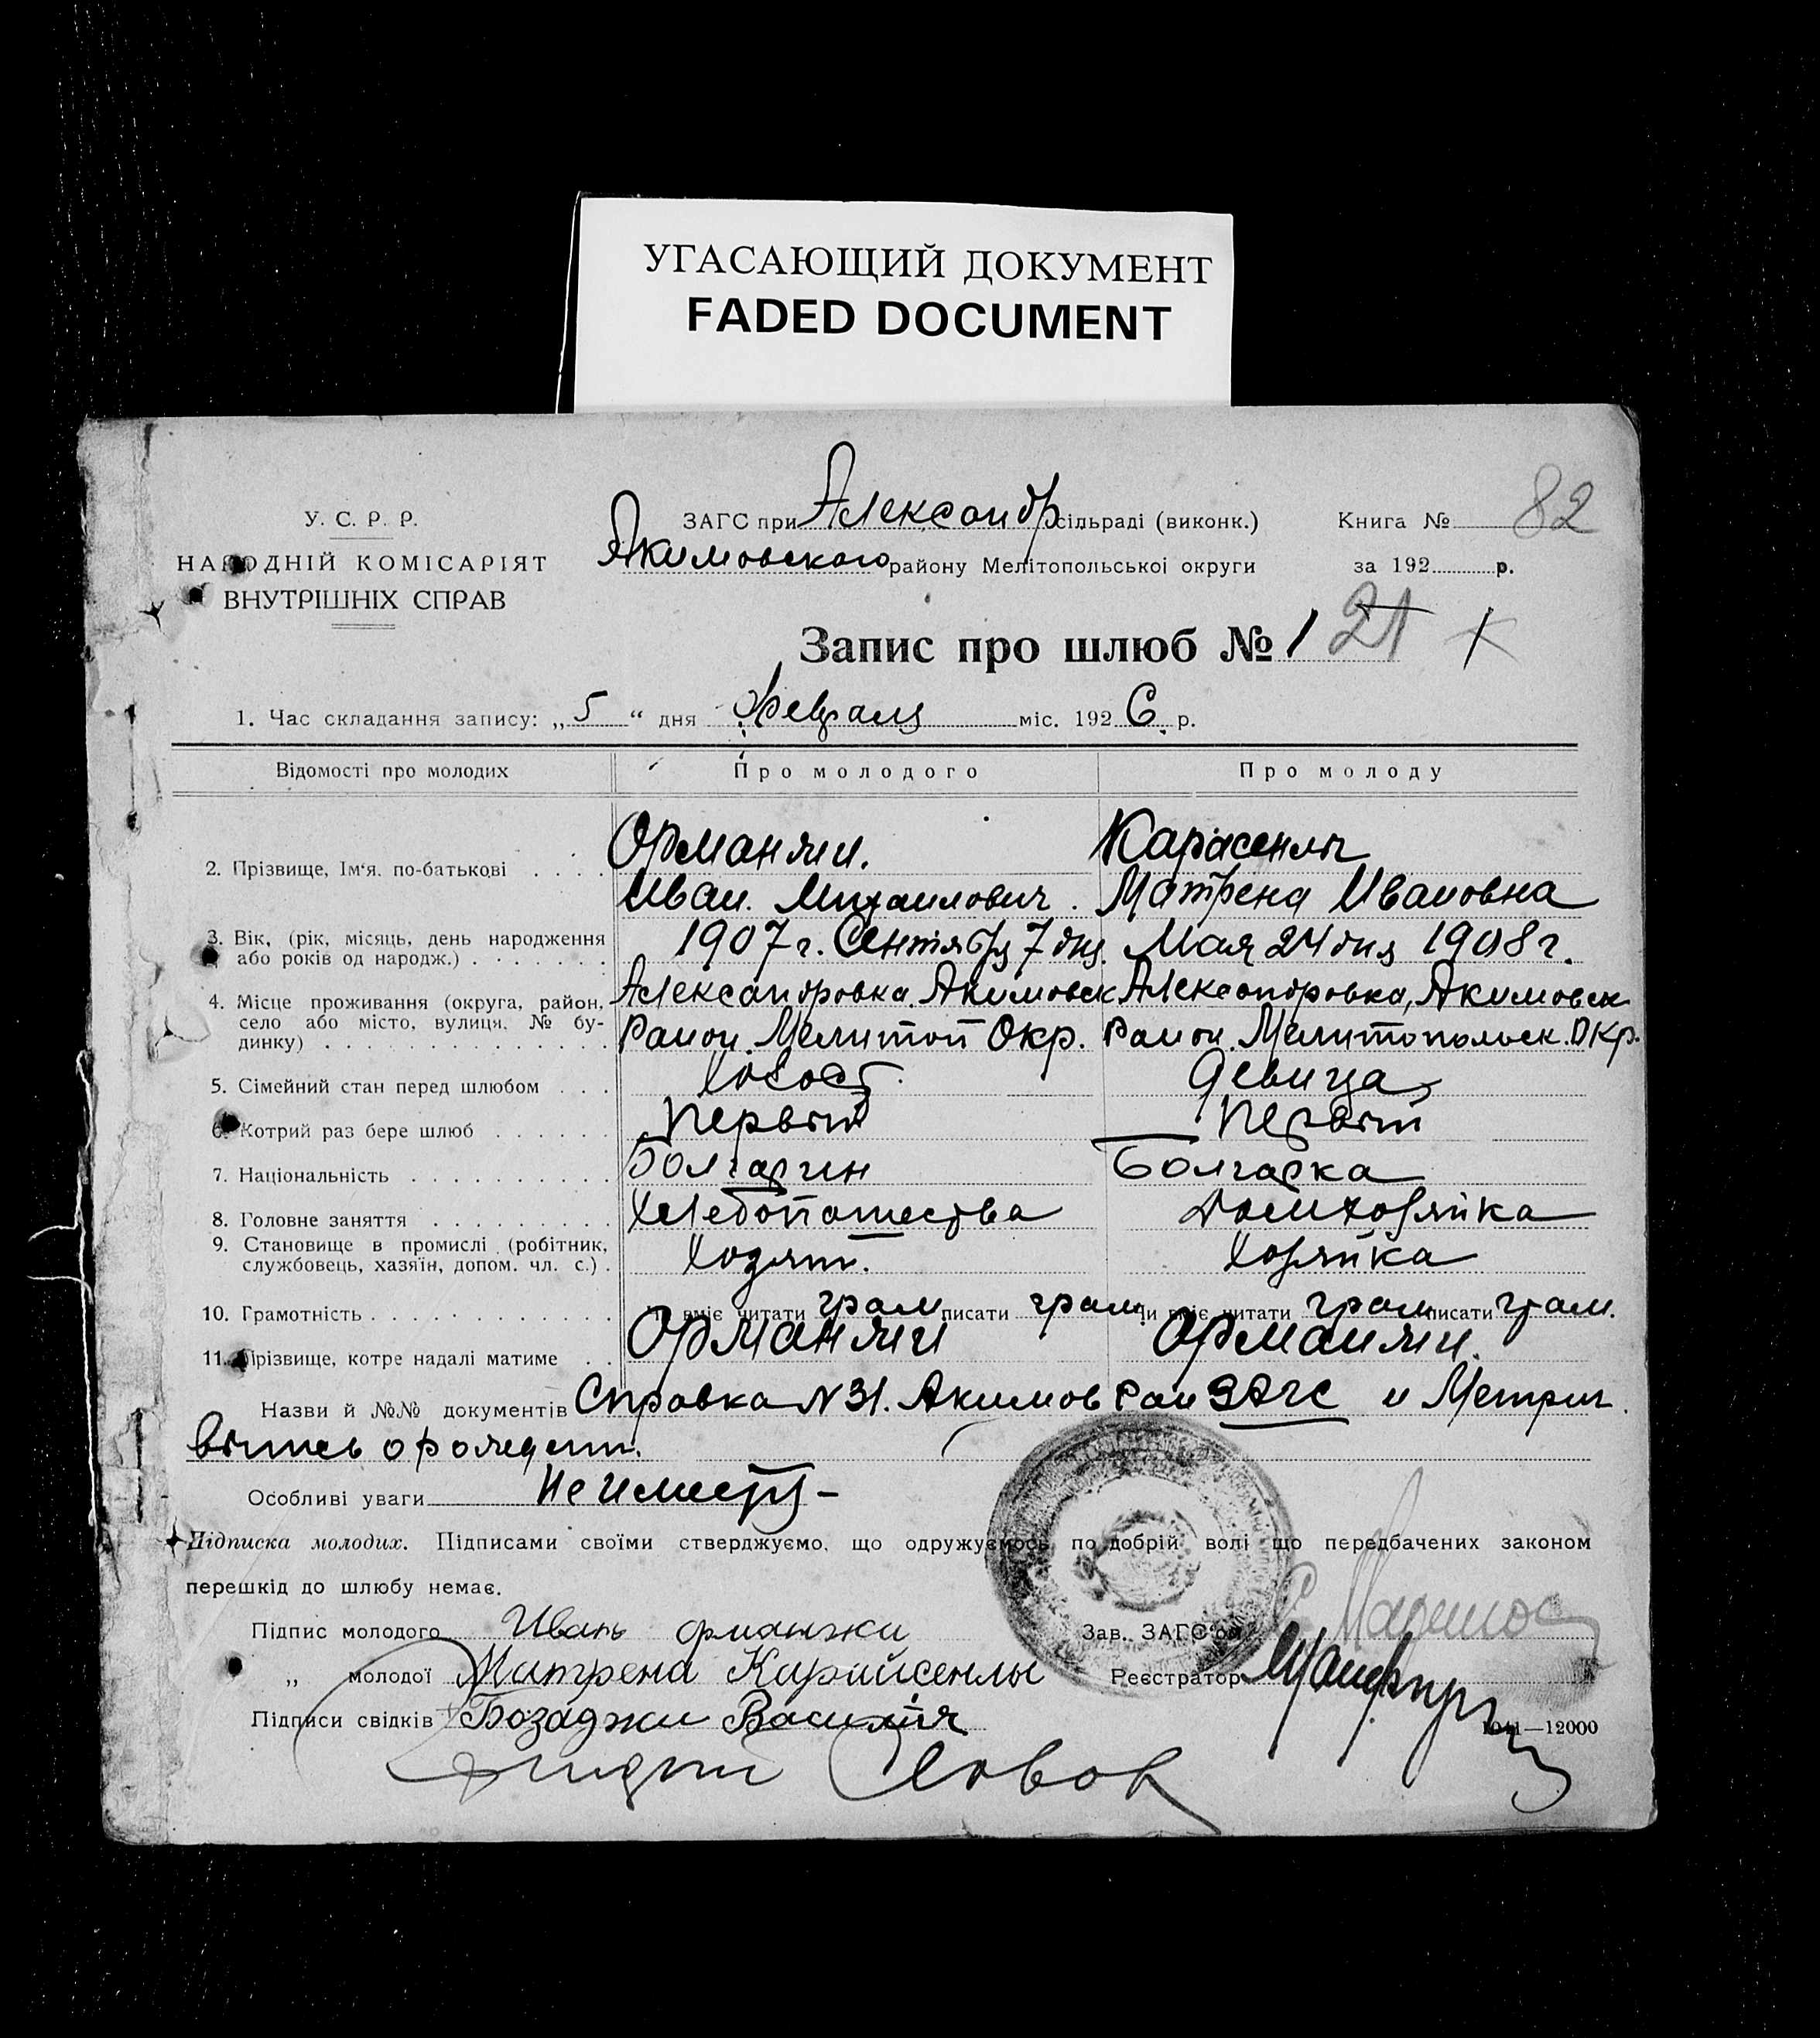 УГАСАЮЩИЙ ДОКУМЕНТ
FADED DOCUMENT
У. С. Р. Р.
НАРОДНІЙ КОМІСАРІЯТ
ВНУТРІШНІХ СПРАВ
ЗАГС при Александр сільраді (виконк.)
Акимовского району Мелітопольської округи
Книга № 82
за 192 р.
Запис про шлюб № 1 21
1. Час складання запису: „ 5 “ дня февраля міс. 192 6 р.
Відомості про молодих Про молодого Про молоду
2. Прізвище, Ім'я, по-батькові . . . .
Орманжи. Карасенлы
Иван. Михаилович. Матрена Ивановна
3. Вік, (рік, місяць, день народження
або років од народж.) . . . . . .
1907 г. Сентября 7 дня. Мая 24 дня 1908 г.
4. Місце проживання (округа, район,
село або місто, вулиця, № бу-
динку) . . . . . . . . . . . . . .
Александровка. Акимовск Александровка, Акимовск
Раион. Мелитоп Окр. Раион. Мелитопольск. Окр.
5. Сімейний стан перед шлюбом . . . Холост. Девица
6. Котрий раз бере шлюб . . . . . . Первый Первый
7. Національність . . . . . . . . . . Болгарин Болгарка
8. Головне заняття . . . . . . . . . Хлебопашества Домхозяйка
9. Становище в промислі (робітник,
службовець, хазяїн, допом. чл. с.) .
Хозяин. Хозяйка
10. Грамотність . . . . . . . . . . . . вміє читати грам писати грам чи вміє читати грам писати грам.
11. Прізвище, котре надалі матиме . . Орманжи Орманжи.
Назви й №№ документів Справка N 31. Акимов Раи ЗАГС и Метрич.
выпись о рожден.
Особливі уваги Не имеется –
Підписка молодих. Підписами своїми стверджуємо, що одружуємось по добрій волі що передбачених законом
перешкід до шлюбу немає.
Підпис молодого Иванъ орманжи
„ молодої Матрена Карайсенлы
Підписи свідків Бозаджи Василия
Зав. ЗАГС'ом
Реєстратор
1041—12000